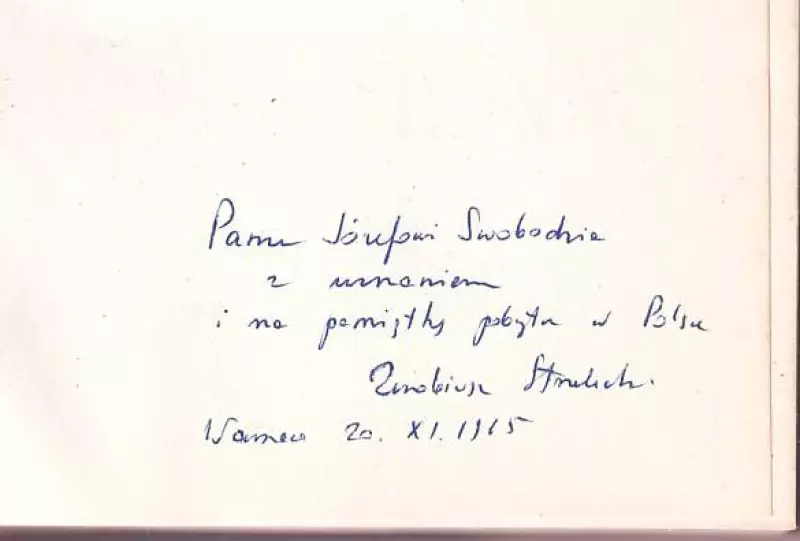 Panu Józefowi Swobodzie
z uznaniem
i na pamiątkę pobytu w Polsce
Zenobiusz Strzelecki.
Warszawa 20. XI. 1965